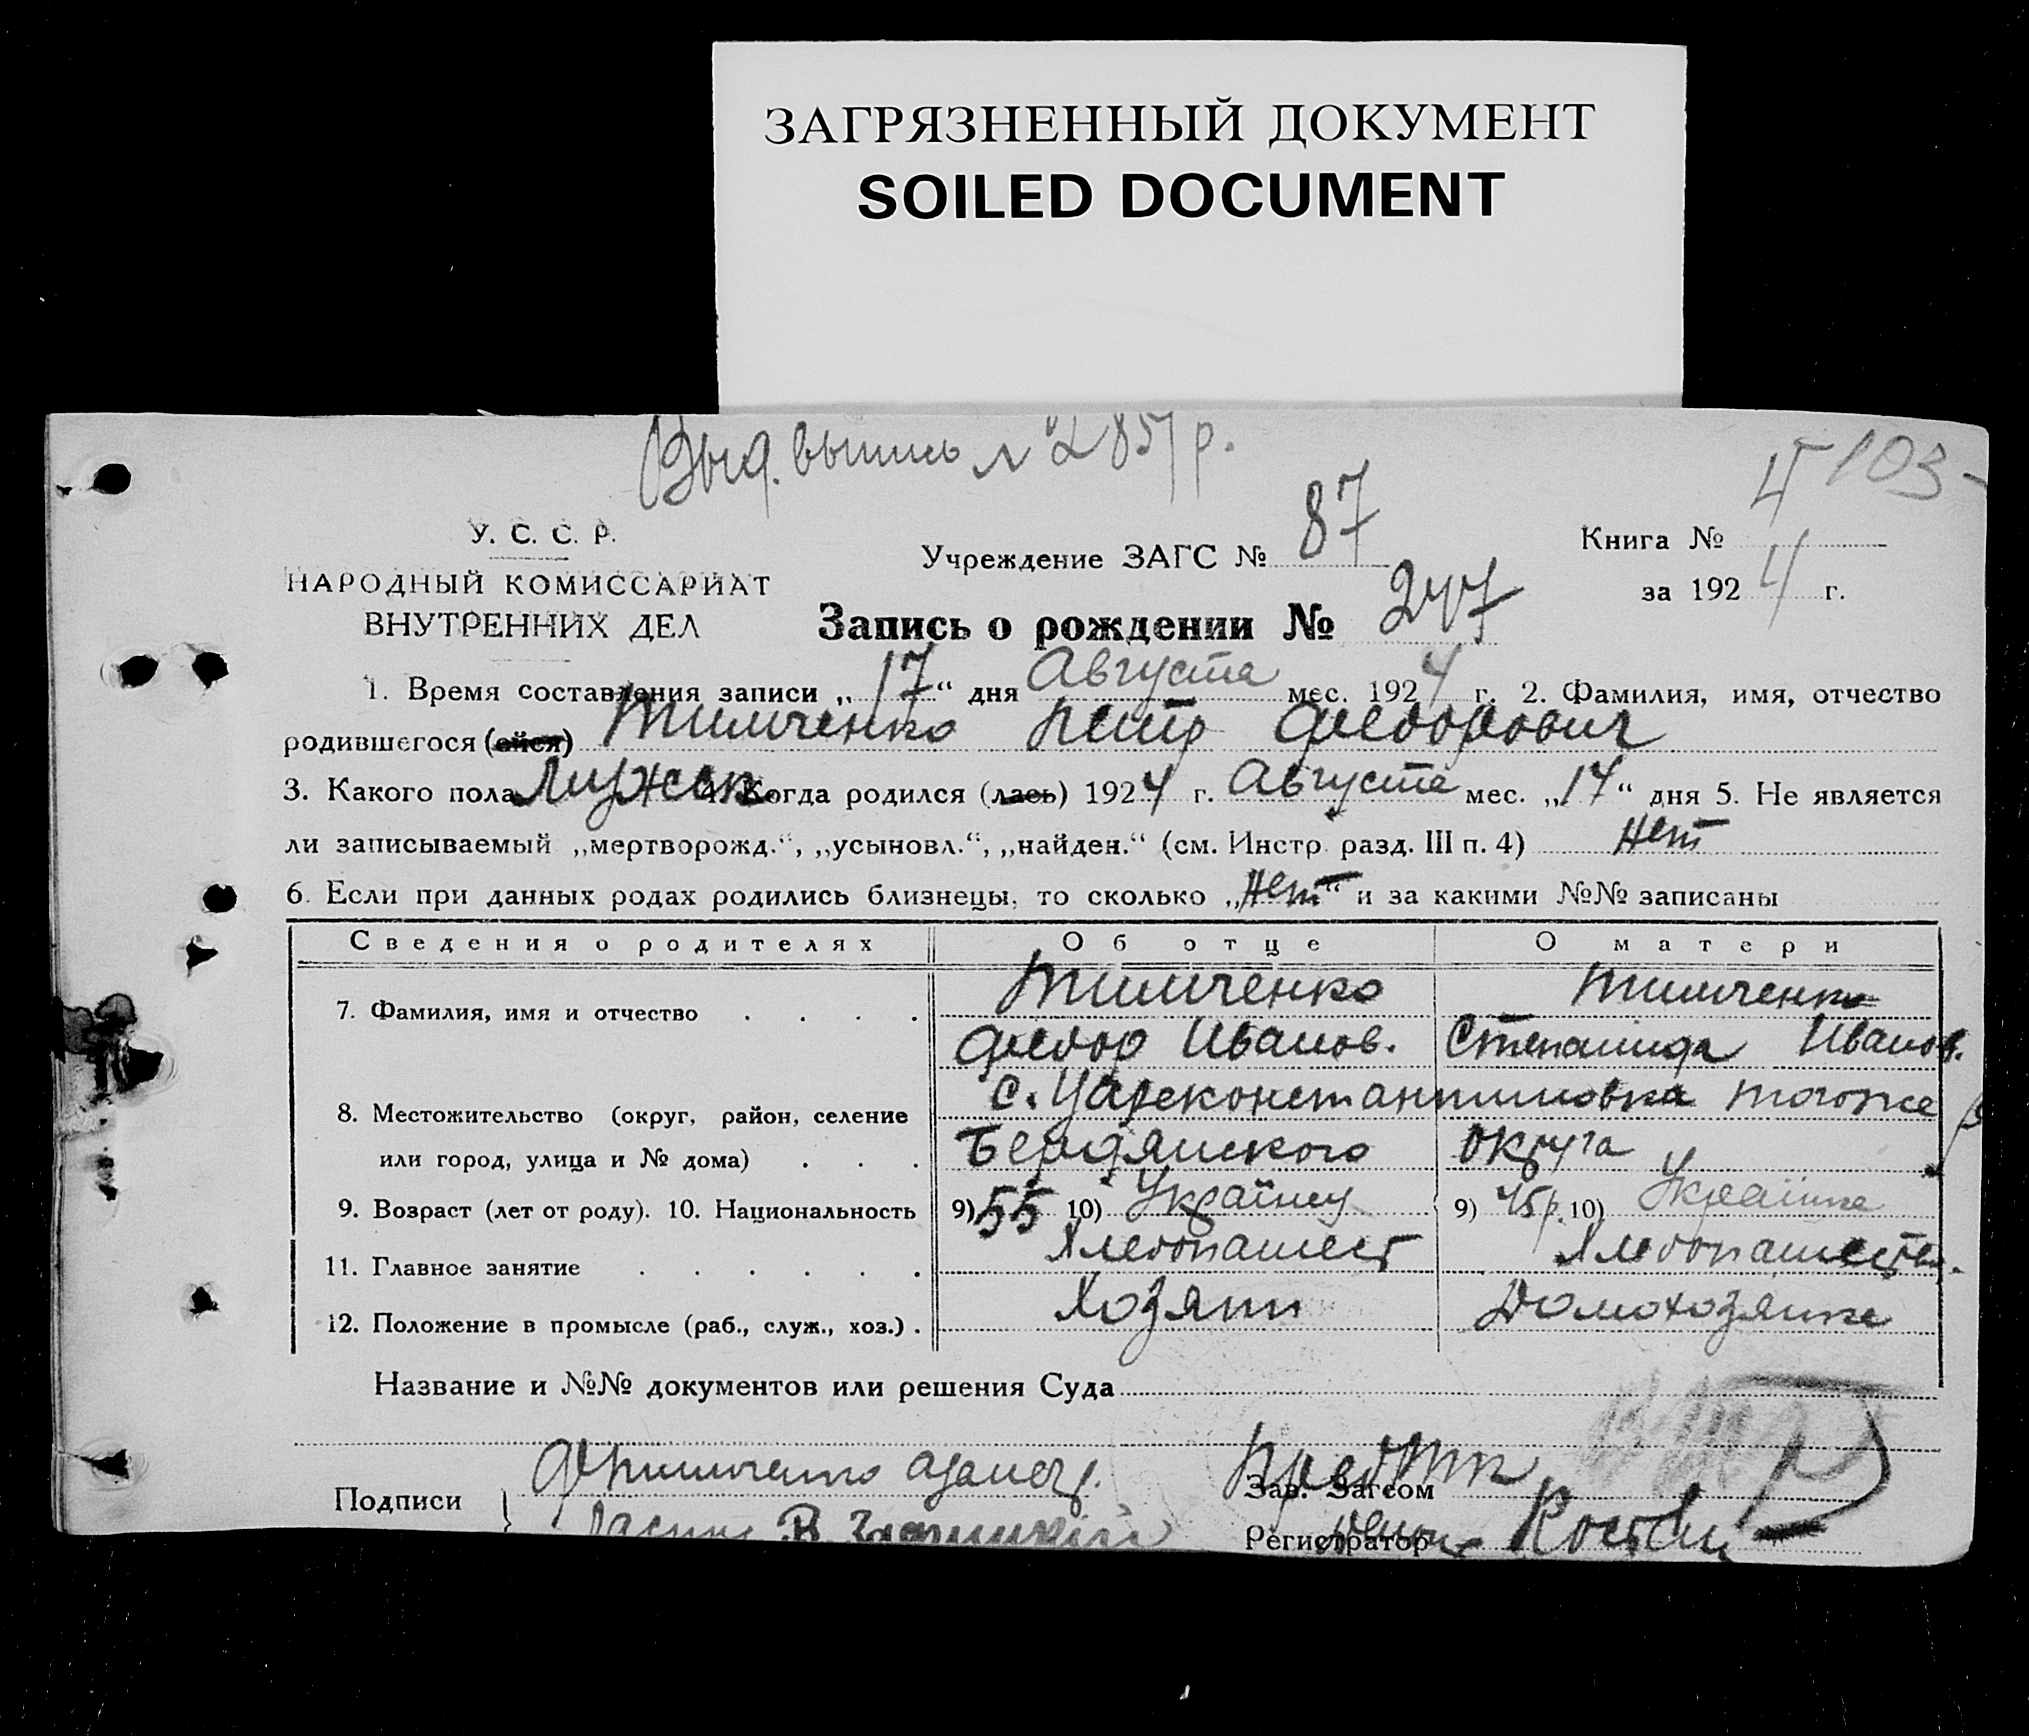 ЗАГРЯЗНЕННЫЙ ДОКУМЕНТ
SOILED DOCUMENT
Выд. выпись № 285 р.
103
У. С. С. Р.
НАРОДНЫЙ КОМИССАРИАТ
ВНУТРЕННИХ ДЕЛ
Учреждение ЗАГС № 87
Книга №
за 1924 г.
Запись о рождении № 247
1. Время составления записи „17“ дня Августа мес. 1924 г. 2. Фамилия, имя, отчество
родившегося (ойся) Тимченко Петр Федорович
3. Какого пола Мужск 4. Когда родился (лась) 1924 г. Августа мес. „14“ дня 5. Не является
ли записываемый „мертворожд.“, „усыновл.“, „найден.“ (см. Инстр. разд. III п. 4) Нет
6. Если при данных родах родились близнецы, то сколько „Нет“ и за какими №№ записаны
Сведения о родителях Об отце О матери
7. Фамилия, имя и отчество Тимченко Тимченко
Федор Иванов. Степанида Иванов.
8. Местожительство (округ, район, селение с. Цареконстантиновка тогоже р
или город, улица и № дома) Бердянского округа
9. Возраст (лет от роду). 10. Национальность 9) 55 10) Українец 9) 45 р. 10) Українка
11. Главное занятие Хлебопашест Хлебопашеств.
12. Положение в промысле (раб., служ., хоз.) Хозяин Домохозяйка
Название и №№ документов или решения Суда
Подписи
Зав. Загсом
Регистратор